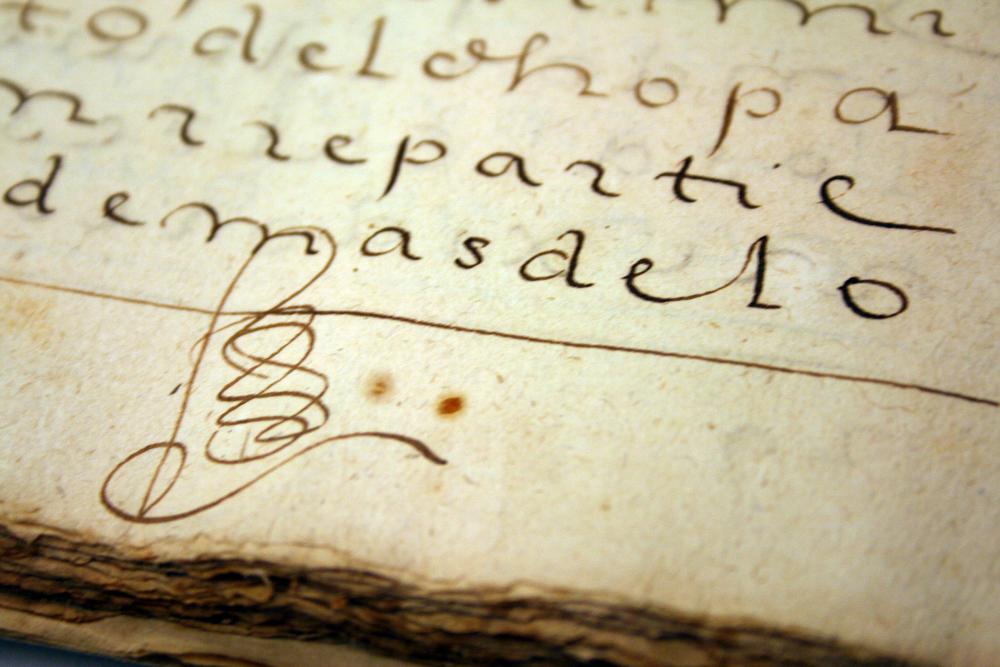 to del chopa
n rrepartie
demas delo